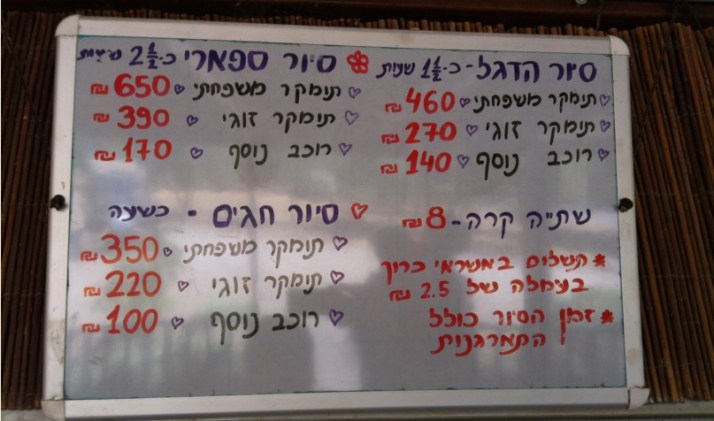 סיור הדגל - כ-1½ שעות
תומקר משפחתי 460 ₪
תומקר זוגי 270 ₪
רוכב נוסף 140 ₪
שתייה קרה - 8 ₪
* תשלום באשראי כרוך
בעמלה של 2.5 ₪
* זמן הסיור כולל
התארגנות
סיור ספארי כ-2½ שעות
תומקר משפחתי 650 ₪
תומקר זוגי 390 ₪
רוכב נוסף 170 ₪
סיור חגים - כשעה
תומקר משפחתי 350 ₪
תומקר זוגי 220 ₪
רוכב נוסף 100 ₪